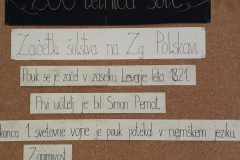 200 letnica šole
Začetki šolstva na Zg. Polskavi
Pouk se je začel v zaselku Levanje leta 1821.
Prvi učitelj je bil Simon Pernat.
konca I. svetovne vojne je pouk potekal v nemškem jeziku.
Zanimivost